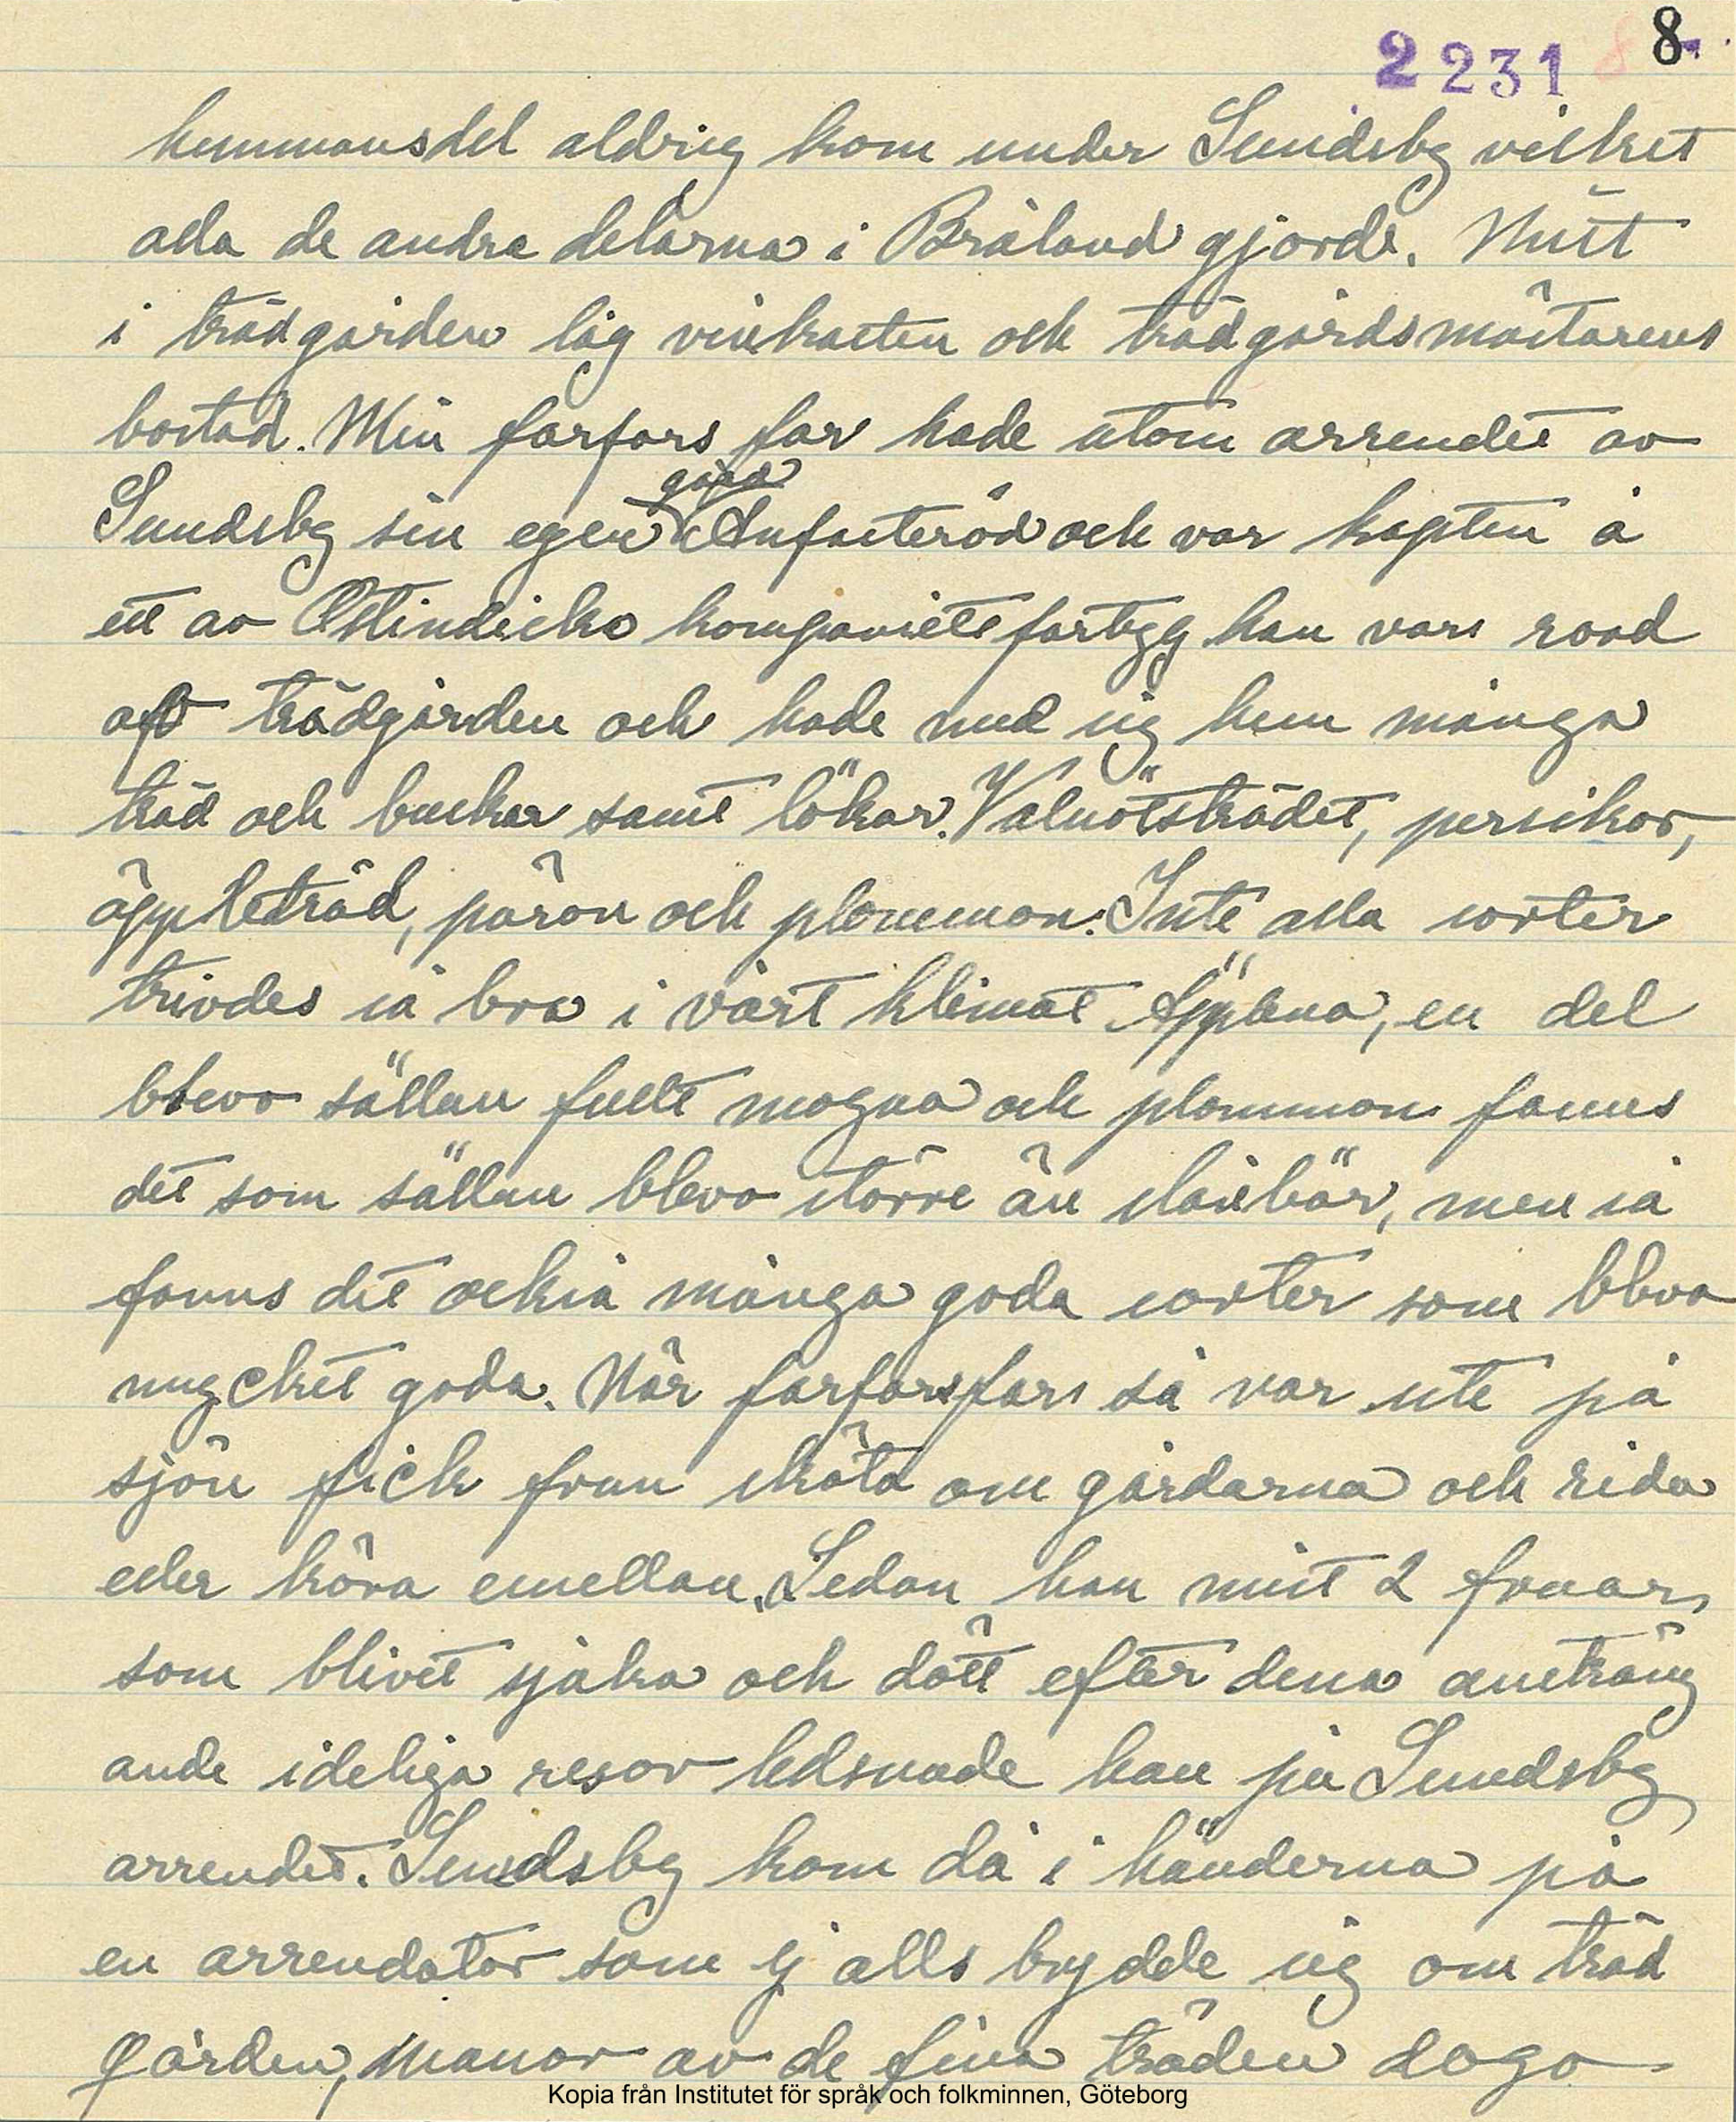 2231 8
hemmansdel aldrig kom under Sundsby vilket
alla de andra delarna i Bråland gjorde. Mitt
i trädgården låg vinkasten och trädgårdsmästarens
bostad. Min farfars far hade utom arrendet av
gård
Sundsby sin egen Anfasteröd och var kapten å
ett av Ostindiska kompaniets fartyg han vars road
af trädgården och hade med sig hem många
träd och buskar samt lökar. Valnötsträdet, persikor,
äppleträd, päron och plommon. Inte alla sorter
trivdes så bra i vårt klimat Äpplena, en del
blevo sällan fullt mogna och plommon fanns
det som sällan blevo större än slånbär, men så
fanns det också många goda sorter som blevo
mycket goda. När farfarsfars så var ute på
sjön fick frun sköta om gårdarna och rida
eller köra emellan. Sedan han mist 2 fruar,
som blivit sjuka och dött efter dena ansträng
ande ideliga resor ledsnade han på Sundsby
arrendet. Sundsby kom då i händerna på
en arrendator som ej alls brydde sig om träd
gården, manor av de fina träden dogo
Kopia från Institutet för språk och folkminnen, Göteborg